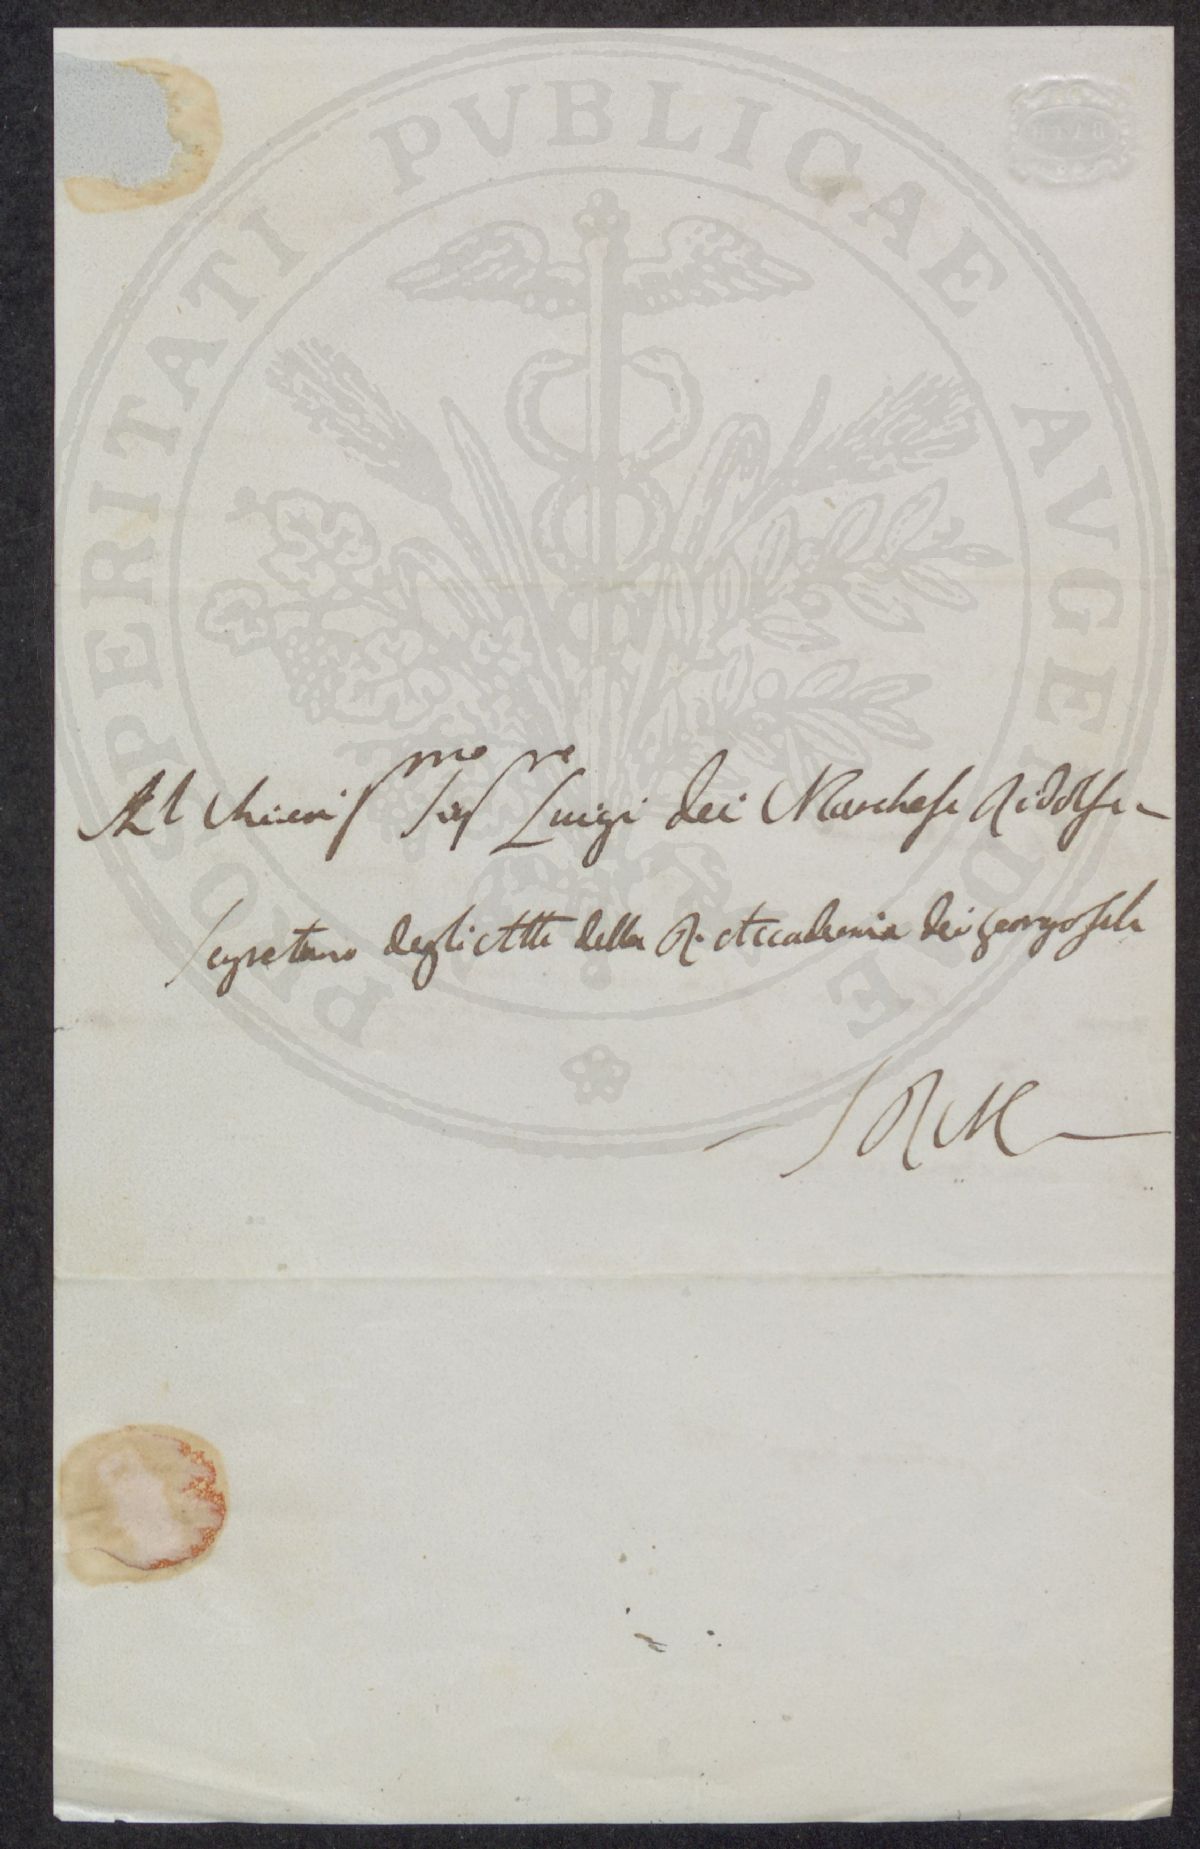 PROSPERITATI PVBLICAE AVGENDAE
BATH
Al Chiaris^mo Sig^re Luigi dei Marchesi Ridolfi
Segretario degli Atti della R. Accademia dei Georgofili
S R M